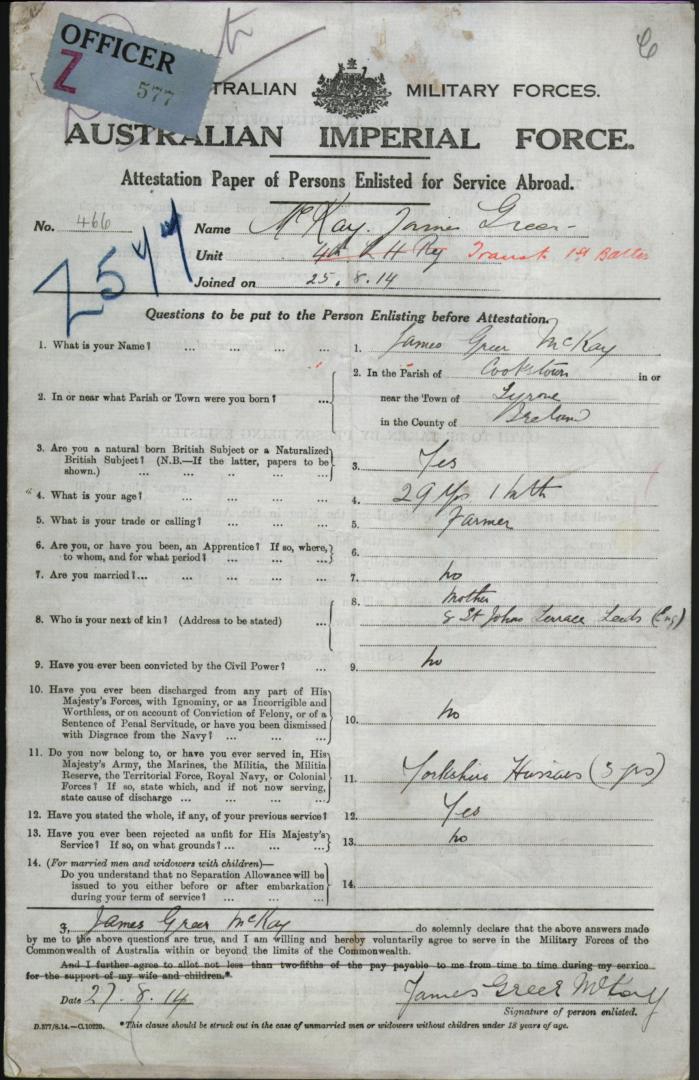 OFFICER
Z
577
AUSTRALIAN MILITARY FORCES.
AUSTRALIAN IMPERIAL FORCE.
Attestation Paper of Persons Enlisted for Service Abroad.
No. 466
Name McKay. James Greer
Unit 4th L H Reg Transf 1st Batln
2577
Joined on 25.8.14
Questions to be put to the Person Enlisting before Attestation.
1. What is your Name? ... ... ... ... 1. James Greer McKay
2. In or near what Parish or Town were you born? ... 2. In the Parish of Cookstown in or
near the Town of Tyrone
in the County of Ireland
3. Are you a natural born British Subject or a Naturalized
British Subject? (N.B.—If the latter, papers to be
shown.) ... ... ... ... 3. Yes
4. What is your age? ... ... ... ... 4. 29 yrs 1 mth
5. What is your trade or calling? ... ... ... 5. Farmer
6. Are you, or have you been, an Apprentice? If so, where,
to whom, and for what period? ... ... ... 6.
7. Are you married?... ... ... ... ... 7. no
8. Who is your next of kin? (Address to be stated) ... 8. Mother
St Johns Terrace Leeds (Eng)
9. Have you ever been convicted by the Civil Power? ... 9. no
10. Have you ever been discharged from any part of His
Majesty's Forces, with Ignominy, or as Incorrigible and
Worthless, or on account of Conviction of Felony, or of a
Sentence of Penal Servitude, or have you been dismissed
with Disgrace from the Navy? ... ... ... 10. no
11. Do you now belong to, or have you ever served in, His
Majesty's Army, the Marines, the Militia, the Militia
Reserve, the Territorial Force, Royal Navy, or Colonial
Forces? If so, state which, and if not now serving,
state cause of discharge ... ... ... ... 11. Yorkshire Hussars (3 yrs)
12. Have you stated the whole, if any, of your previous service? 12. Yes
13. Have you ever been rejected as unfit for His Majesty's
Service? If so, on what grounds? ... ... ... 13. no
14. (For married men and widowers with children)—
Do you understand that no Separation Allowance will be
issued to you either before or after embarkation
during your term of service? ... ... ... 14.
I, James Greer McKay do solemnly declare that the above answers made
by me to the above questions are true, and I am willing and hereby voluntarily agree to serve in the Military Forces of the
Commonwealth of Australia within or beyond the limits of the Commonwealth.
And I further agree to allot not less than two-fifths of the pay payable to me from time to time during my service
for the support of my wife and children.*
Date 27.8.14 James Greer McKay
Signature of person enlisted.
D.377/8.14.—C.10220. *This clause should be struck out in the case of unmarried men or widowers without children under 18 years of age.